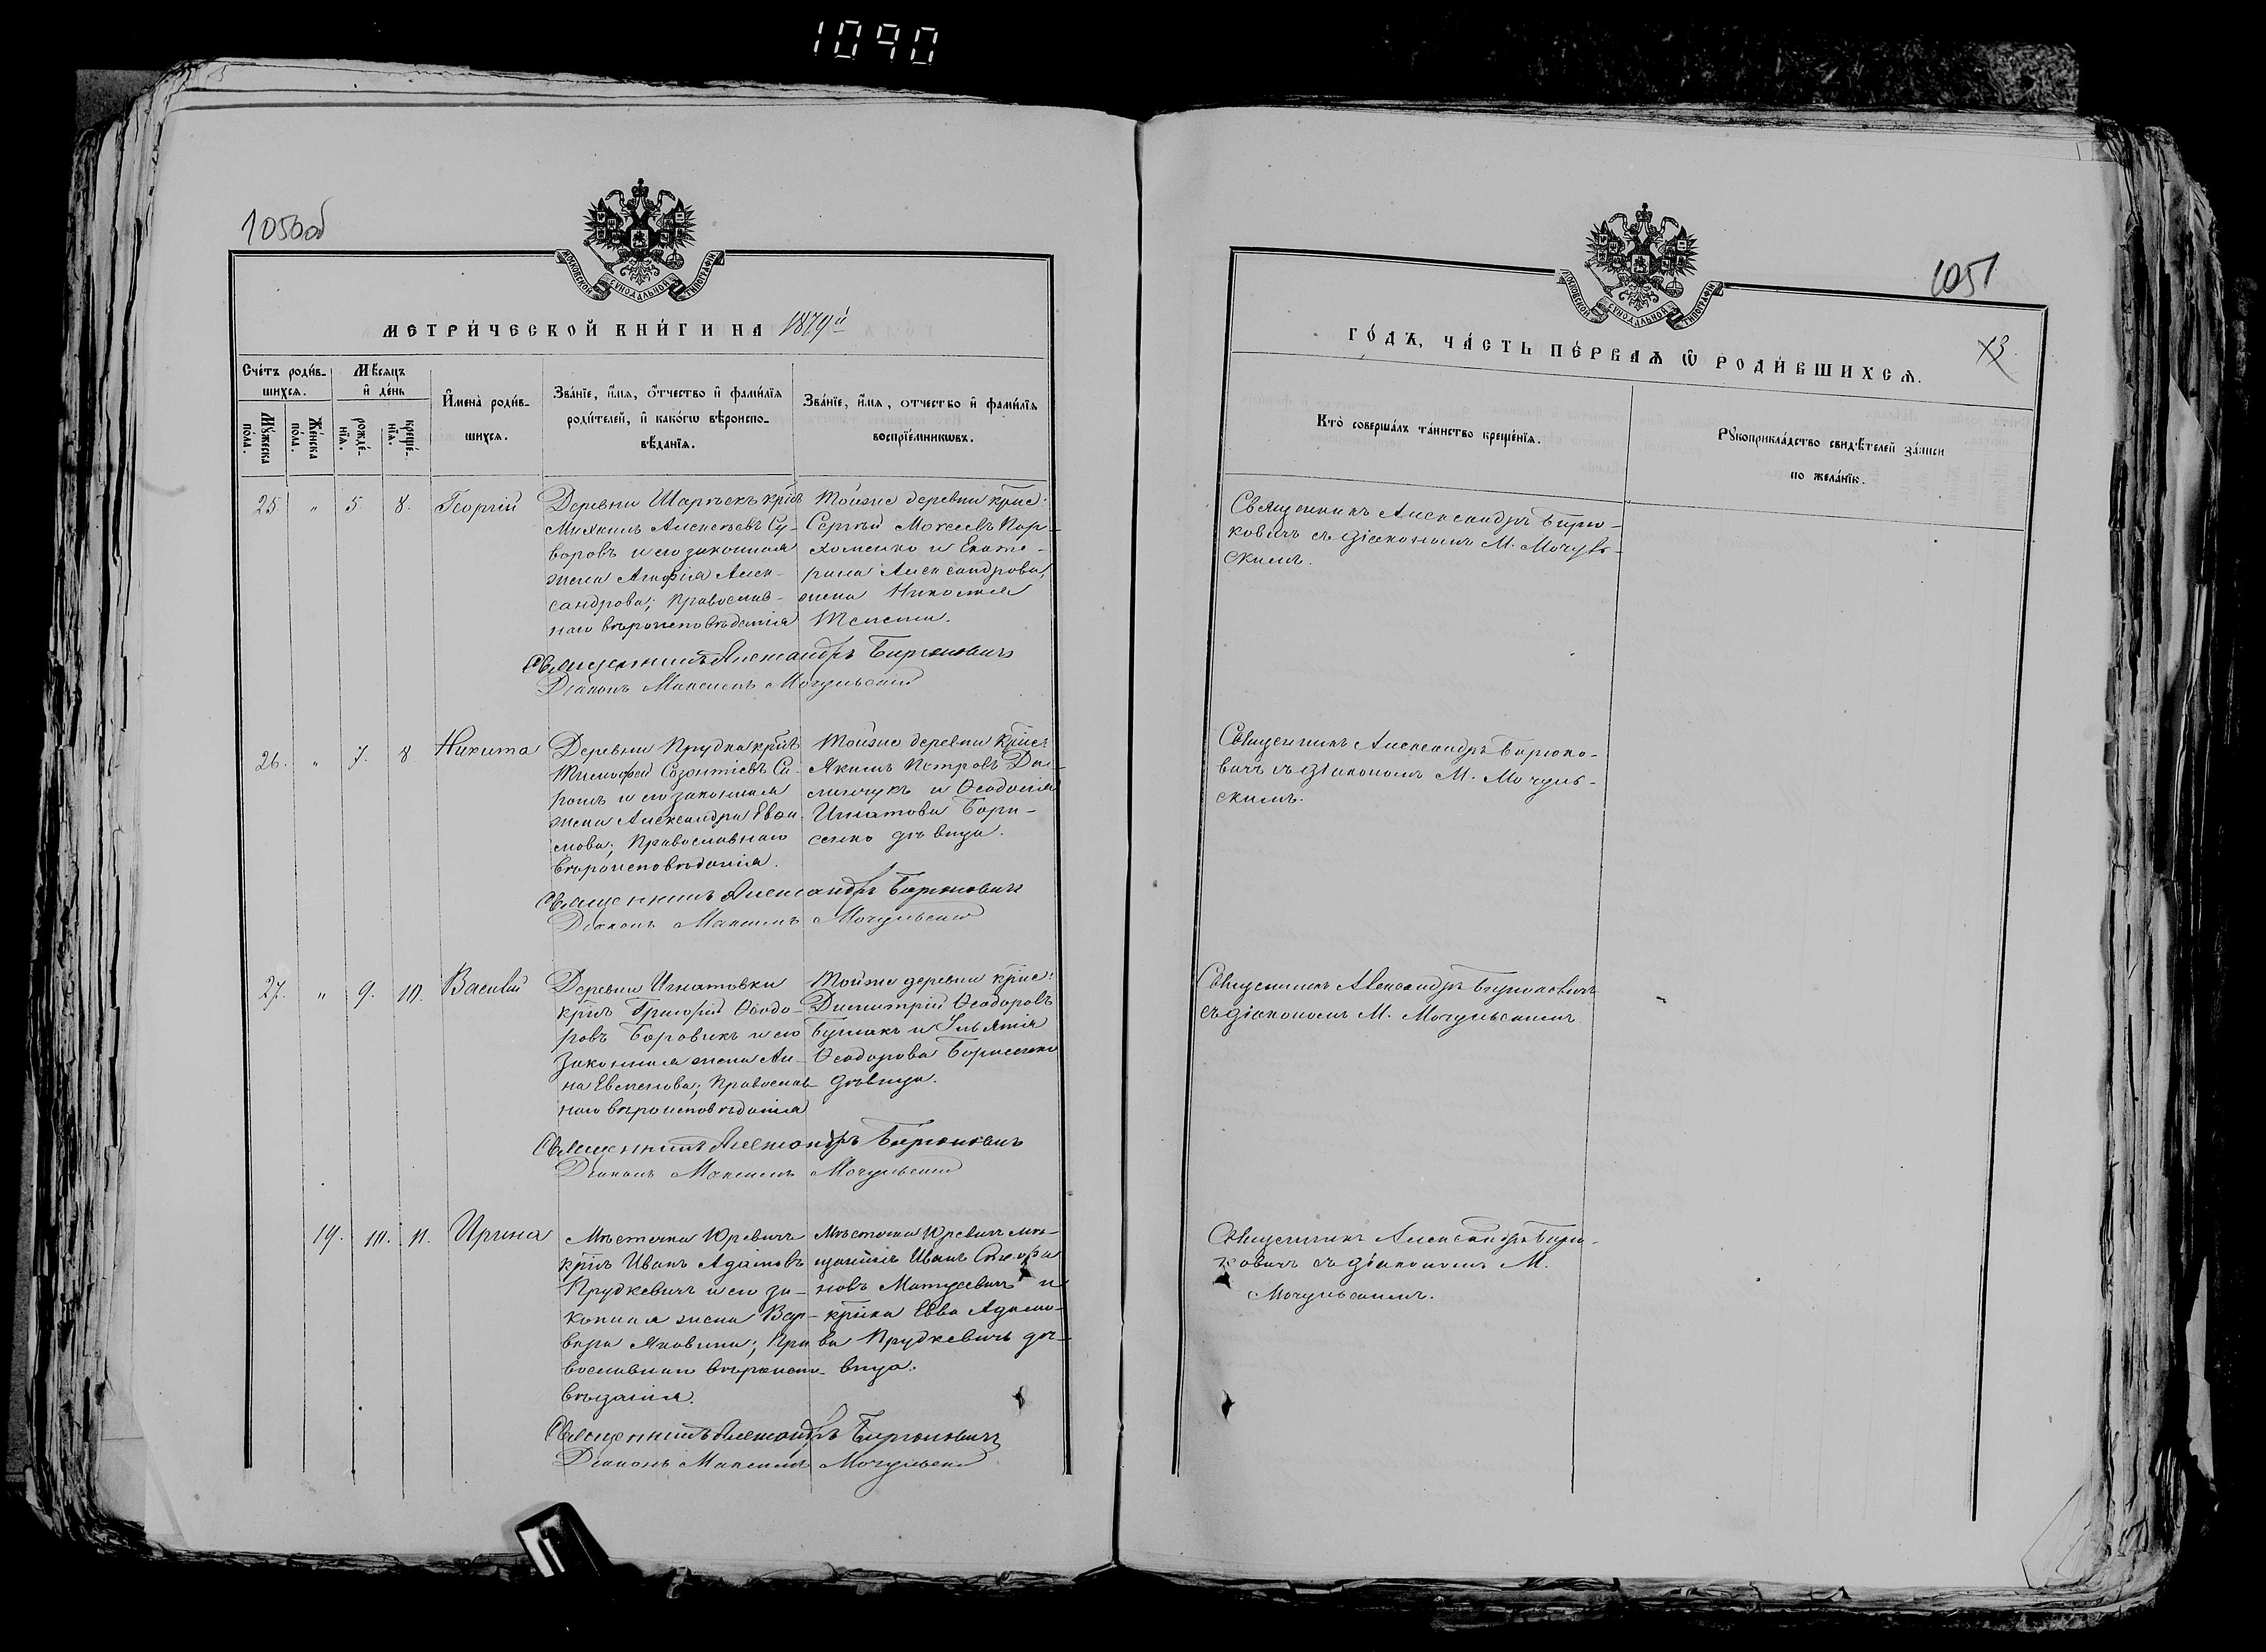 1090
1050об
МОСКОВСКОЙ СУНОДАЛЬНОЙ ТИПОГРАФІИ
МЕТРИ́ЧЕСКОЙ КНИ́ГИ НА 1879й
Сче́тъ роди́в-
шихся.
Мѣ́сяцъ
и҆ де́нь
Му́жеска
по́ла.
Же́нска
по́ла.
рожде́-
нїя.
креще́-
нїя.
И҆мена̀ роди́в-
шихся.
Зва́нїе, и҆́мя, ѻ҆́тчество и҆ фами́лїя
роди́телей, и҆ како́гѡ вѣроиспо-
вѣ́данїя.
Зва́нїе, и҆́мя, отчество и҆ фами́лїя
воспрїе́мникѡвъ.
25 " 5 8. Георгій
Деревни
Михаилъ Алексѣевъ Су-
воровъ и его законная
жена Агафія Алек-
сандрова; Православ-
наго вѣроисповѣданія
Тойже деревни крес:
Сергѣй Моисеевъ Пар-
хоменко и Екате-
рина Александрова,
жена Николая
Священникъ Александръ Бирюковичъ
Діаконъ Максимъ Мочульскій
26. " 7. 8 Никита
Деревни Прудка
Тимофей Созонтіевъ
и его законная
жена Александра
Православнаго
вѣроисповѣданія.
Тойже деревни крес:
Якимъ Петровъ
и Ѳеодосія
Игнатова Бори-
сенко дѣвица.
Священникъ Александръ Бирюковичъ
Діаконъ Максимъ Мочульскій
27. " 9. 10. Василій
Деревни Игнатовки
Григорій Ѳеодо-
ровъ Боровикъ и его
законная жена Ан-
на Евсеева; Православ-
наго вѣроисповѣданія
Тойже деревни крес:
Димитрій Ѳеодоровъ
Ѳеодорова Борисенко
дѣвица.
Священникъ Александръ Бирюковичъ
Діаконъ Максимъ Мочульскій
19. 10. 11. Ирина
Мѣстечка Юревичъ
Иванъ Адамовъ
Прудкевичъ и его за-
конная жена Вар-
вара Яковлева; Пра-
вославнаго вѣроиспо-
вѣданія.
Мѣстечка Юревичъ мѣ-
щанинъ Иванъ Стефа
новъ Матусевичъ и
Евва Адамо-
ва Прудкевичъ дѣ-
вица.
Священникъ Александръ Бирюковичъ
Діаконъ Максимъ Мочульскій
1051
13.
МОСКОВСКОЙ СУНОДАЛЬНОЙ ТИПОГРАФІИ
ГО́ДЪ, ЧА́СТЬ ПЕ́РВАЯ Ѡ҆ РОДИ́ВШИХСЯ.
Кто̀ соверша́лъ та́инство креще́нїя.
Рꙋкоприкла́дство свидѣ́телей за́писи
по жела́нїю.
Священникъ Александръ Бирю-
ковичъ съ діакономъ М. Мочуль-
скимъ.
Священникъ Александръ Бирюко-
вичъ съ діакономъ М. Мочуль-
скимъ.
Священникъ Александръ Бирюковичъ
съ діакономъ М. Мочульскимъ
Священникъ Александръ Бирю-
ковичъ съ діакономъ М.
Мочульскимъ.